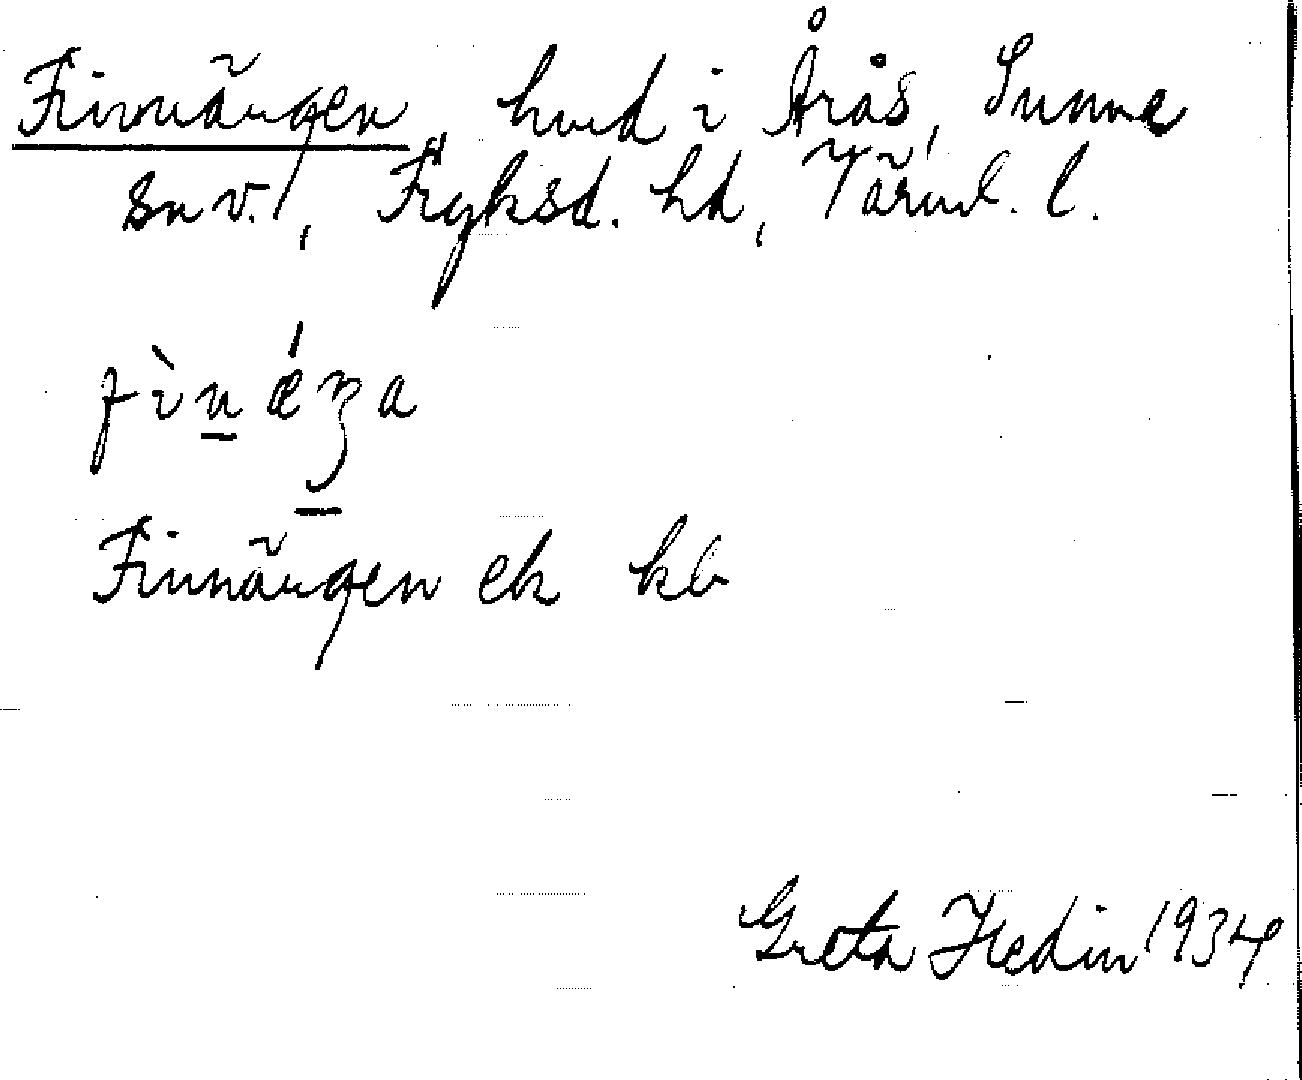 Finnängen, hmd i Årås, Sunne
sn v., Fryksd. hd, Värml. l.
fìn̲ǽŋ̲a
Finnängen ek kb
Greta Hedin 1934